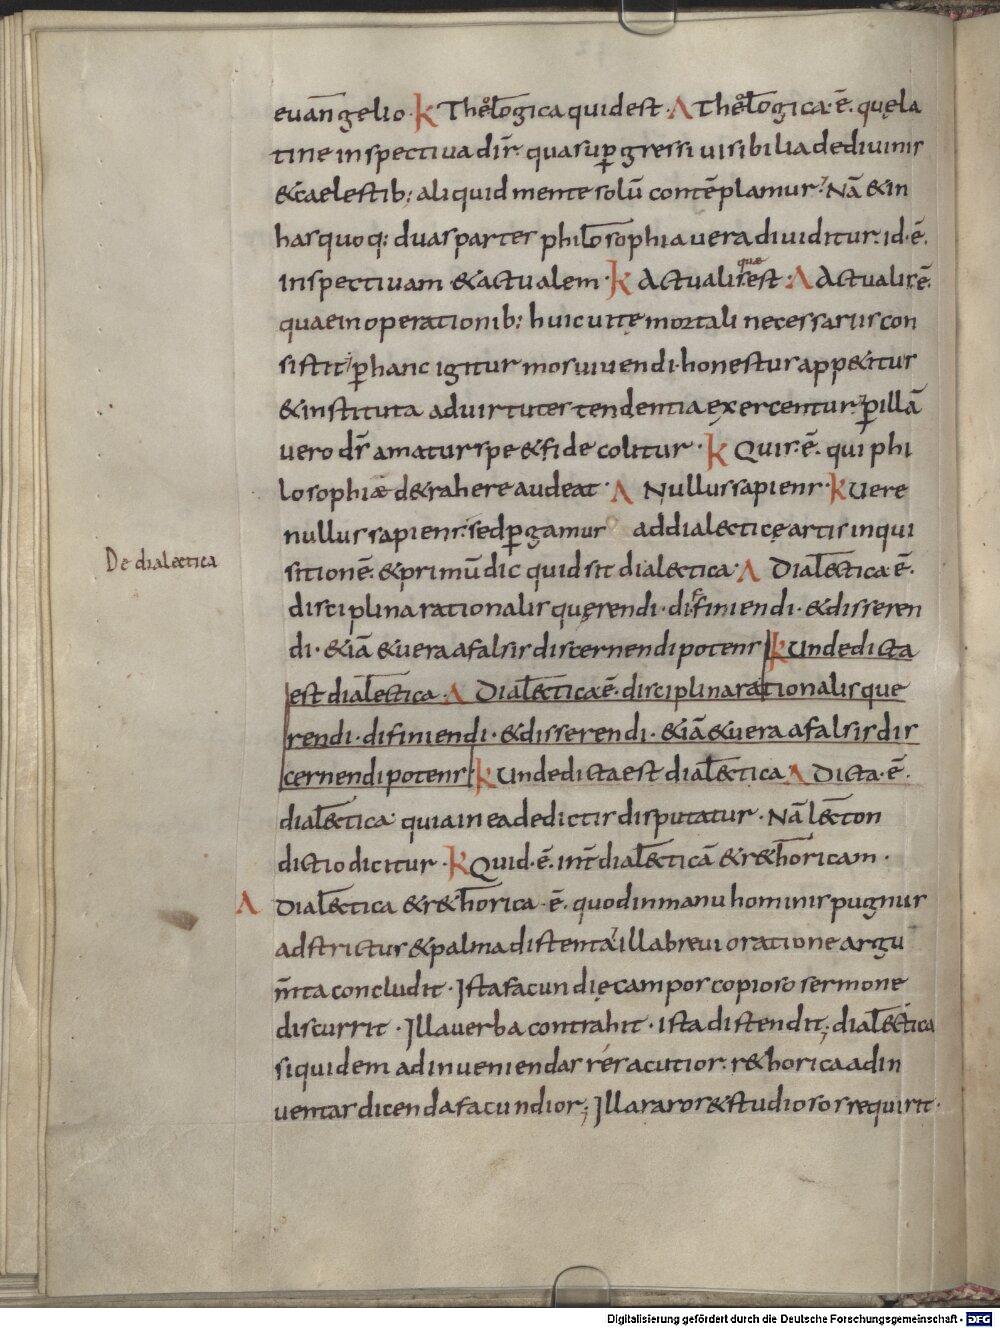 euangelio · k Theologica quid est · Λ Theologica · ē · quę la
tine inspectiua dir̄ · qua supergressi uisibilia de diuinis
&caelestib; aliquid mente solū contēplamur · Nā & in
has quoq; duas partes philosophia uera diuiditur · id · ē ·
inspectiuam & actualem · k Actualis quæ est · Λ Actualis ē ·
quae in operationib; huic uitę mortali necessariis con
sistit · p̱ hanc igitur mos uiuendi · honestus app&itur
& instituta ad uirtutes tendentia exercentur · p̱ illā
uero dr̄ amatur spe & fide colitur · k Quis · ē · qui phi
losophiæ d&rahere audeat · Λ Nullus sapiens · k Uere
nullus sapiens · sed p̱gamus ad dialecticę artis inqui
sitionē · & primū dic quid sit dialectica · Λ Dialectica · ē ·
De dialectica
disciplina rationalis quęrendi · diffiniendi · & disseren
di · & iā & uera a falsis discernendi potens k Unde dicta
est dialectica · Λ Dialectica ē · disciplina rationalis que
rendi · difiniendi · & disserendi · & iā & uera a falsis dis
cernendi potens · k Unde dicta est dialectica Λ Dicta · ē ·
dialectica quia in ea de dictis disputatur · Nā lecton
dictio dicitur · k Quid · ē · int̄ dialecticā & r&horicam ·
Λ Dialectica & r&horica · ē · quod in manu hominis pugnus
adstrictus & palma distenta · illa breui oratione argu
m̄ta concludit · Ista facundię campos copioso sermone
discurrit · Illa uerba contrahit · ista distendit; dialectica
siquidem ad inueniendas res acutior · r&horica ad in
uentas dicenda facundior; Illa raros & studiosos requirit ·
Digitalisierung gefördert durch die Deutsche Forschungsgemeinschaft - DFG